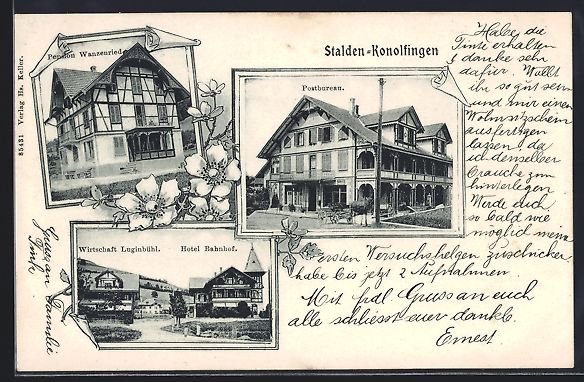 Pension Wanzenried.
Stalden-Konolfingen
Postbureau.
Wirtschaft Luginbühl.
Hotel Bahnhof.
85431 Verlag Hs. Keller.
Habe die
Tinte erhalten
& danke sehr
dafür. Wollt
ihr so gut sein
und mir einen
Wohnsitzschein
ausfertigen
lassen, da
ich denselben
brauche zum
hinterlegen
Werde dich
so bald wie
möglich meine
Ersten Versuchshelgen zuschicken
habe bis jetzt 2 Aufnahmen.
Mit frdl Gruss an euch
alle schliesst euer dankb.
Ernest.
Gruss an Familie